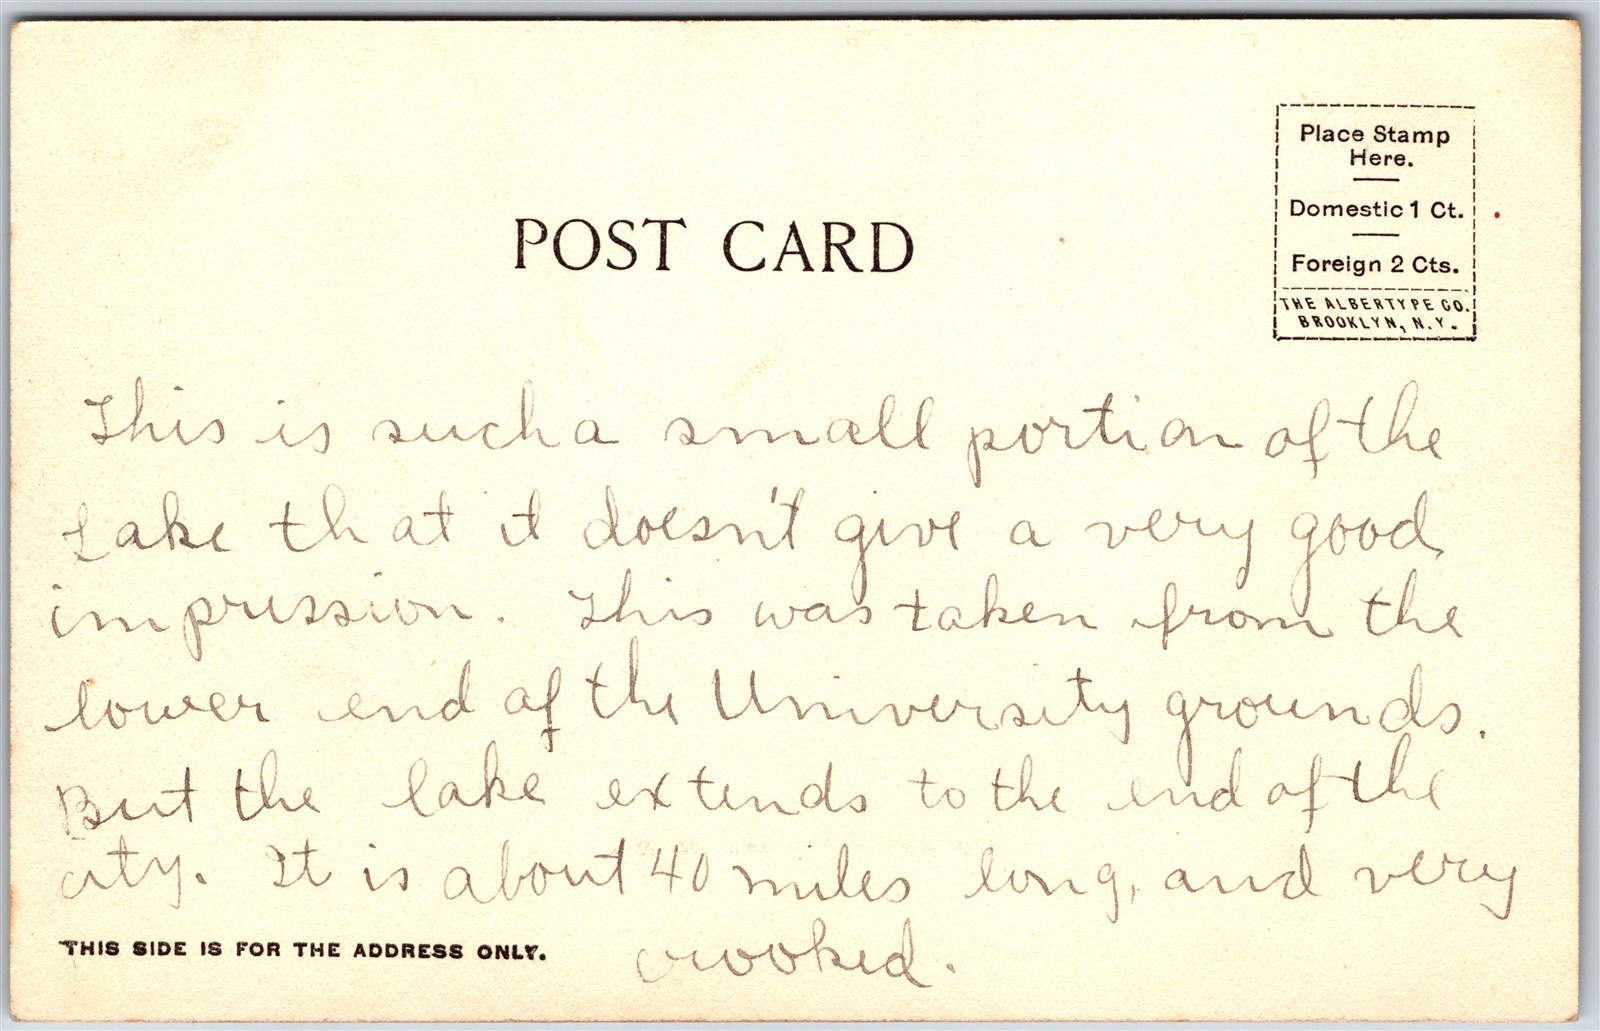 Place Stamp
Here.
Domestic 1 Ct.
Foreign 2 Cts.
THE ALBERTYPE CO.
BROOKLYN, N.Y.
POST CARD
This is such a small portion of the
Lake that it doesn't give a very good
impression. This was taken from the
lower end of the University grounds.
But the lake extends to the end of the
city. It is about 40 miles long, and very
crooked.
THIS SIDE IS FOR THE ADDRESS ONLY.